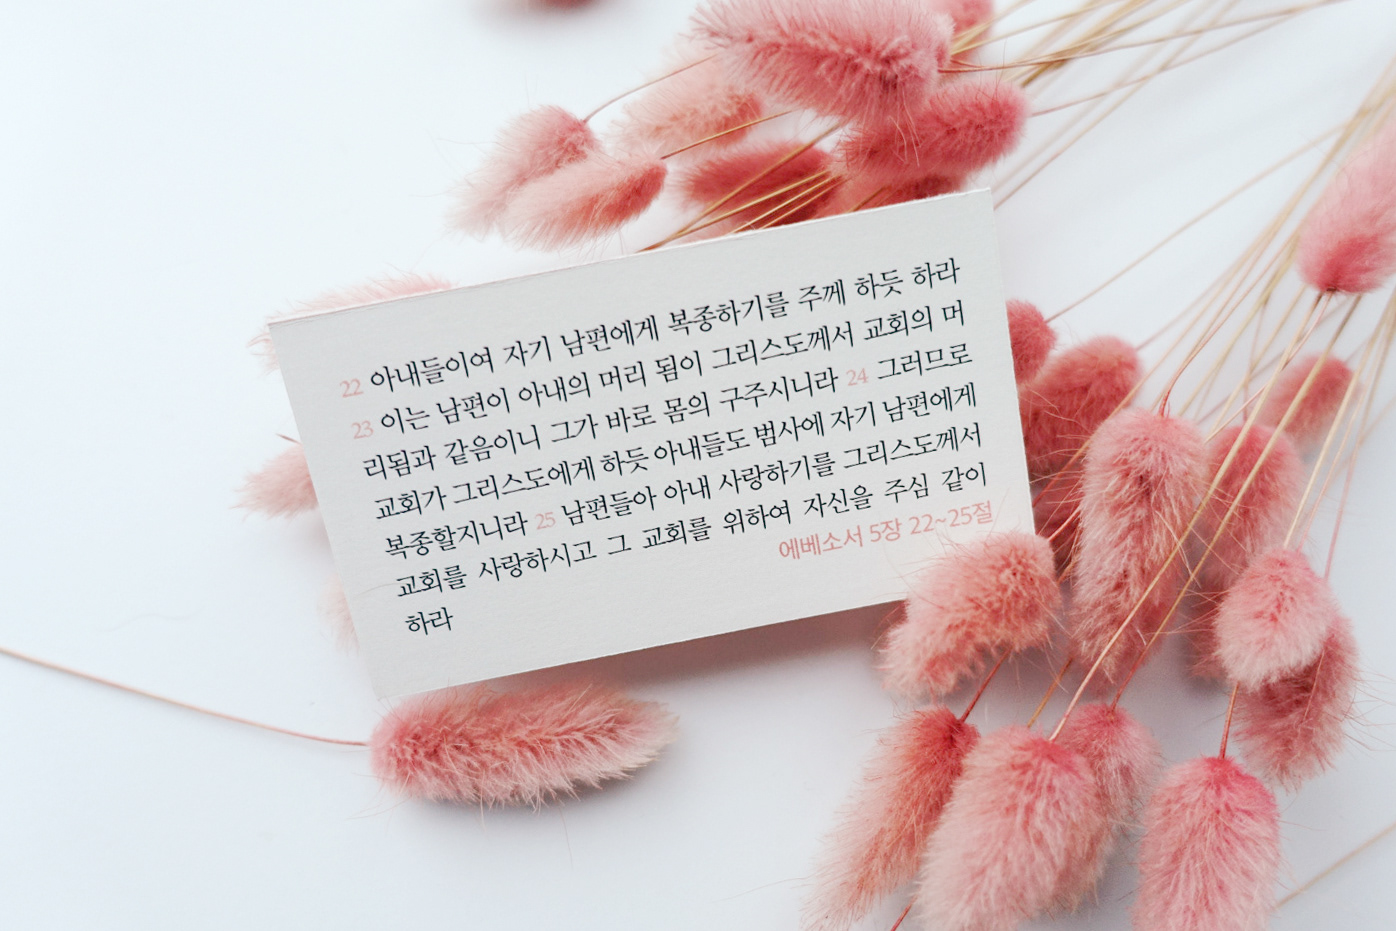 22 아내들이여 자기 남편에게 복종하기를 주께 하듯 하라
23 이는 남편이 아내의 머리 됨이 그리스도께서 교회의 머
리됨과 같음이니 그가 바로 몸의 구주시니라 24 그러므로
교회가 그리스도에게 하듯 아내들도 범사에 자기 남편에게
복종할지니라 25 남편들아 아내 사랑하기를 그리스도께서
교회를 사랑하시고 그 교회를 위하여 자신을 주심 같이
하라
에베소서 5장 22~25절